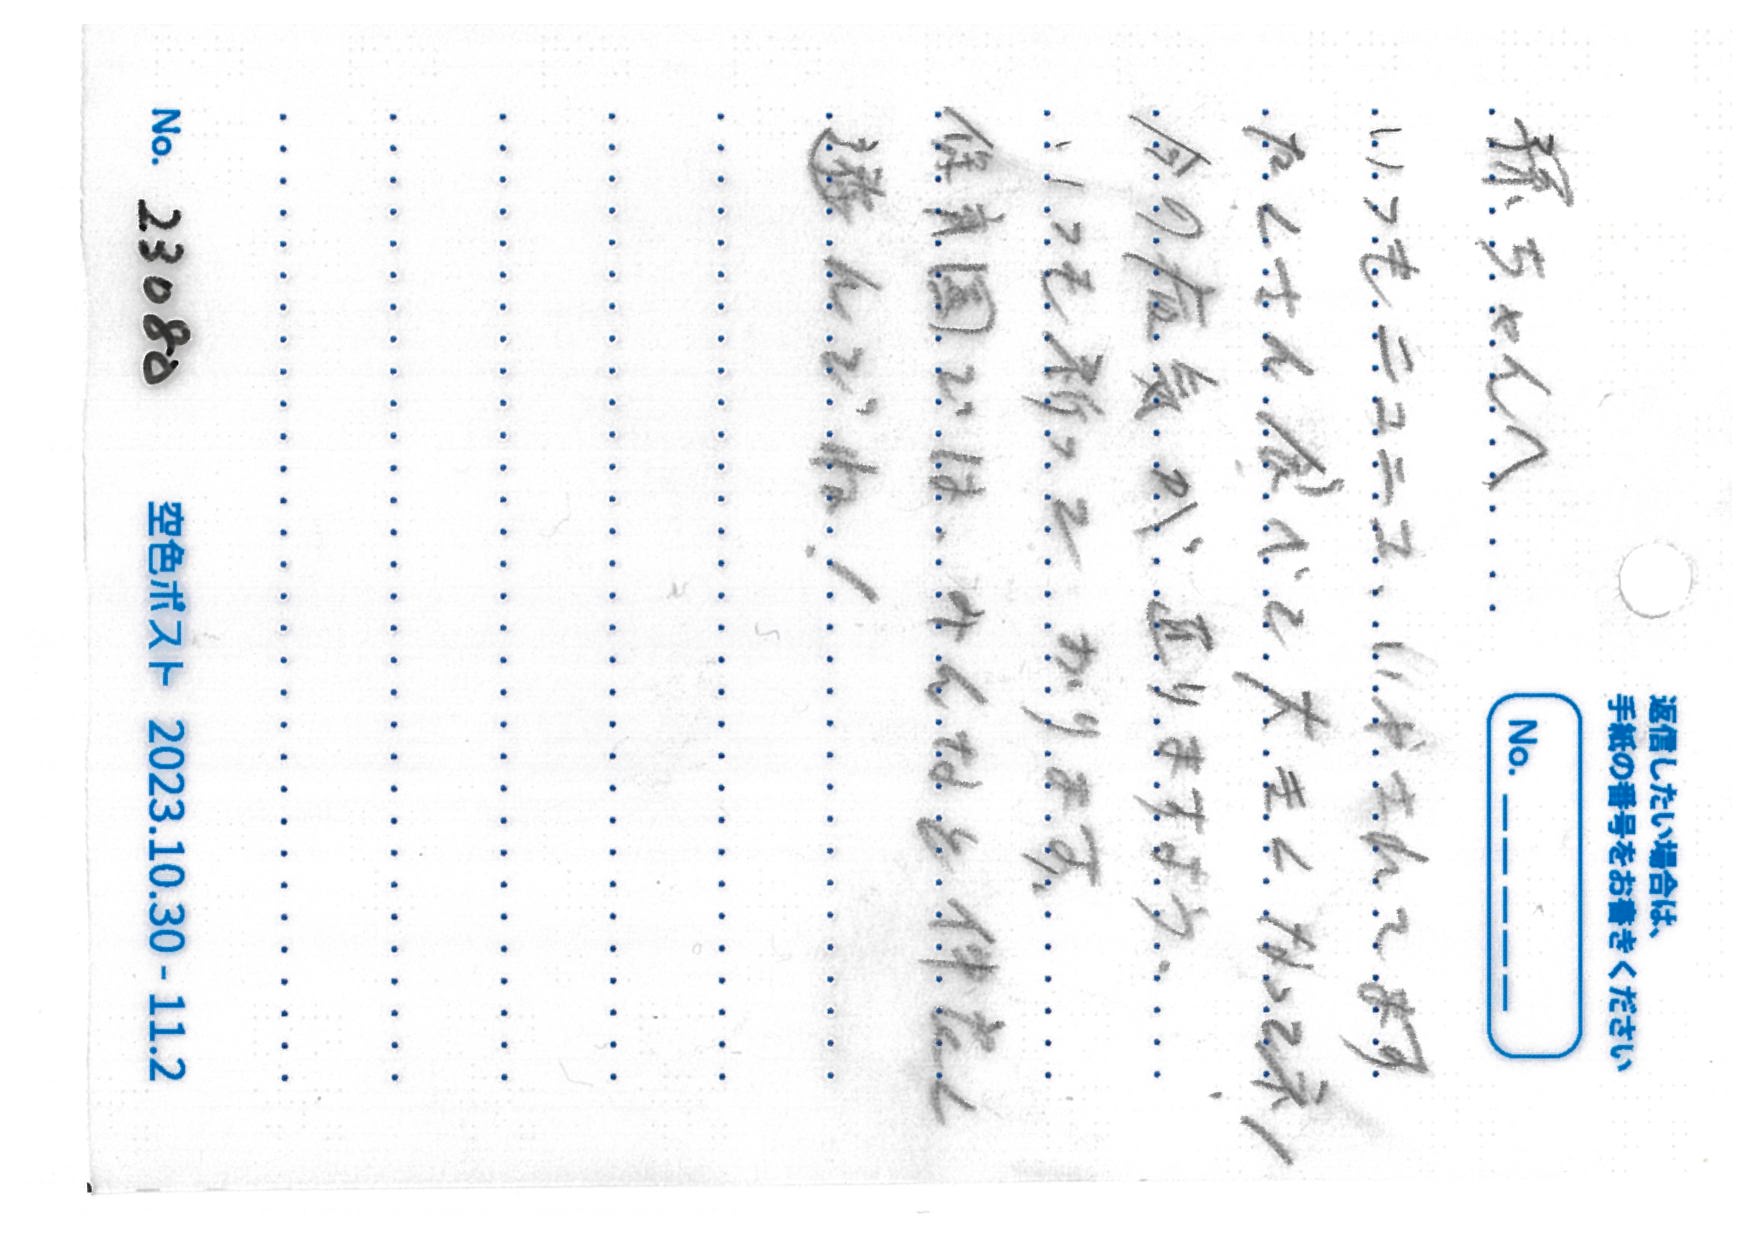 返信したい場合は、
手紙の番号をお書きください
No. _ _ _ _ _
孫ちゃんへ
いつもニコニコ、いやされてます
たくさん食べて大きくなってネ!
今の病気が 治りますよう。
いつも祈って おります。
保育園では、みんなと仲良く
遊んでね!
No. 23080
空色ポスト 2023.10.30 - 11.2